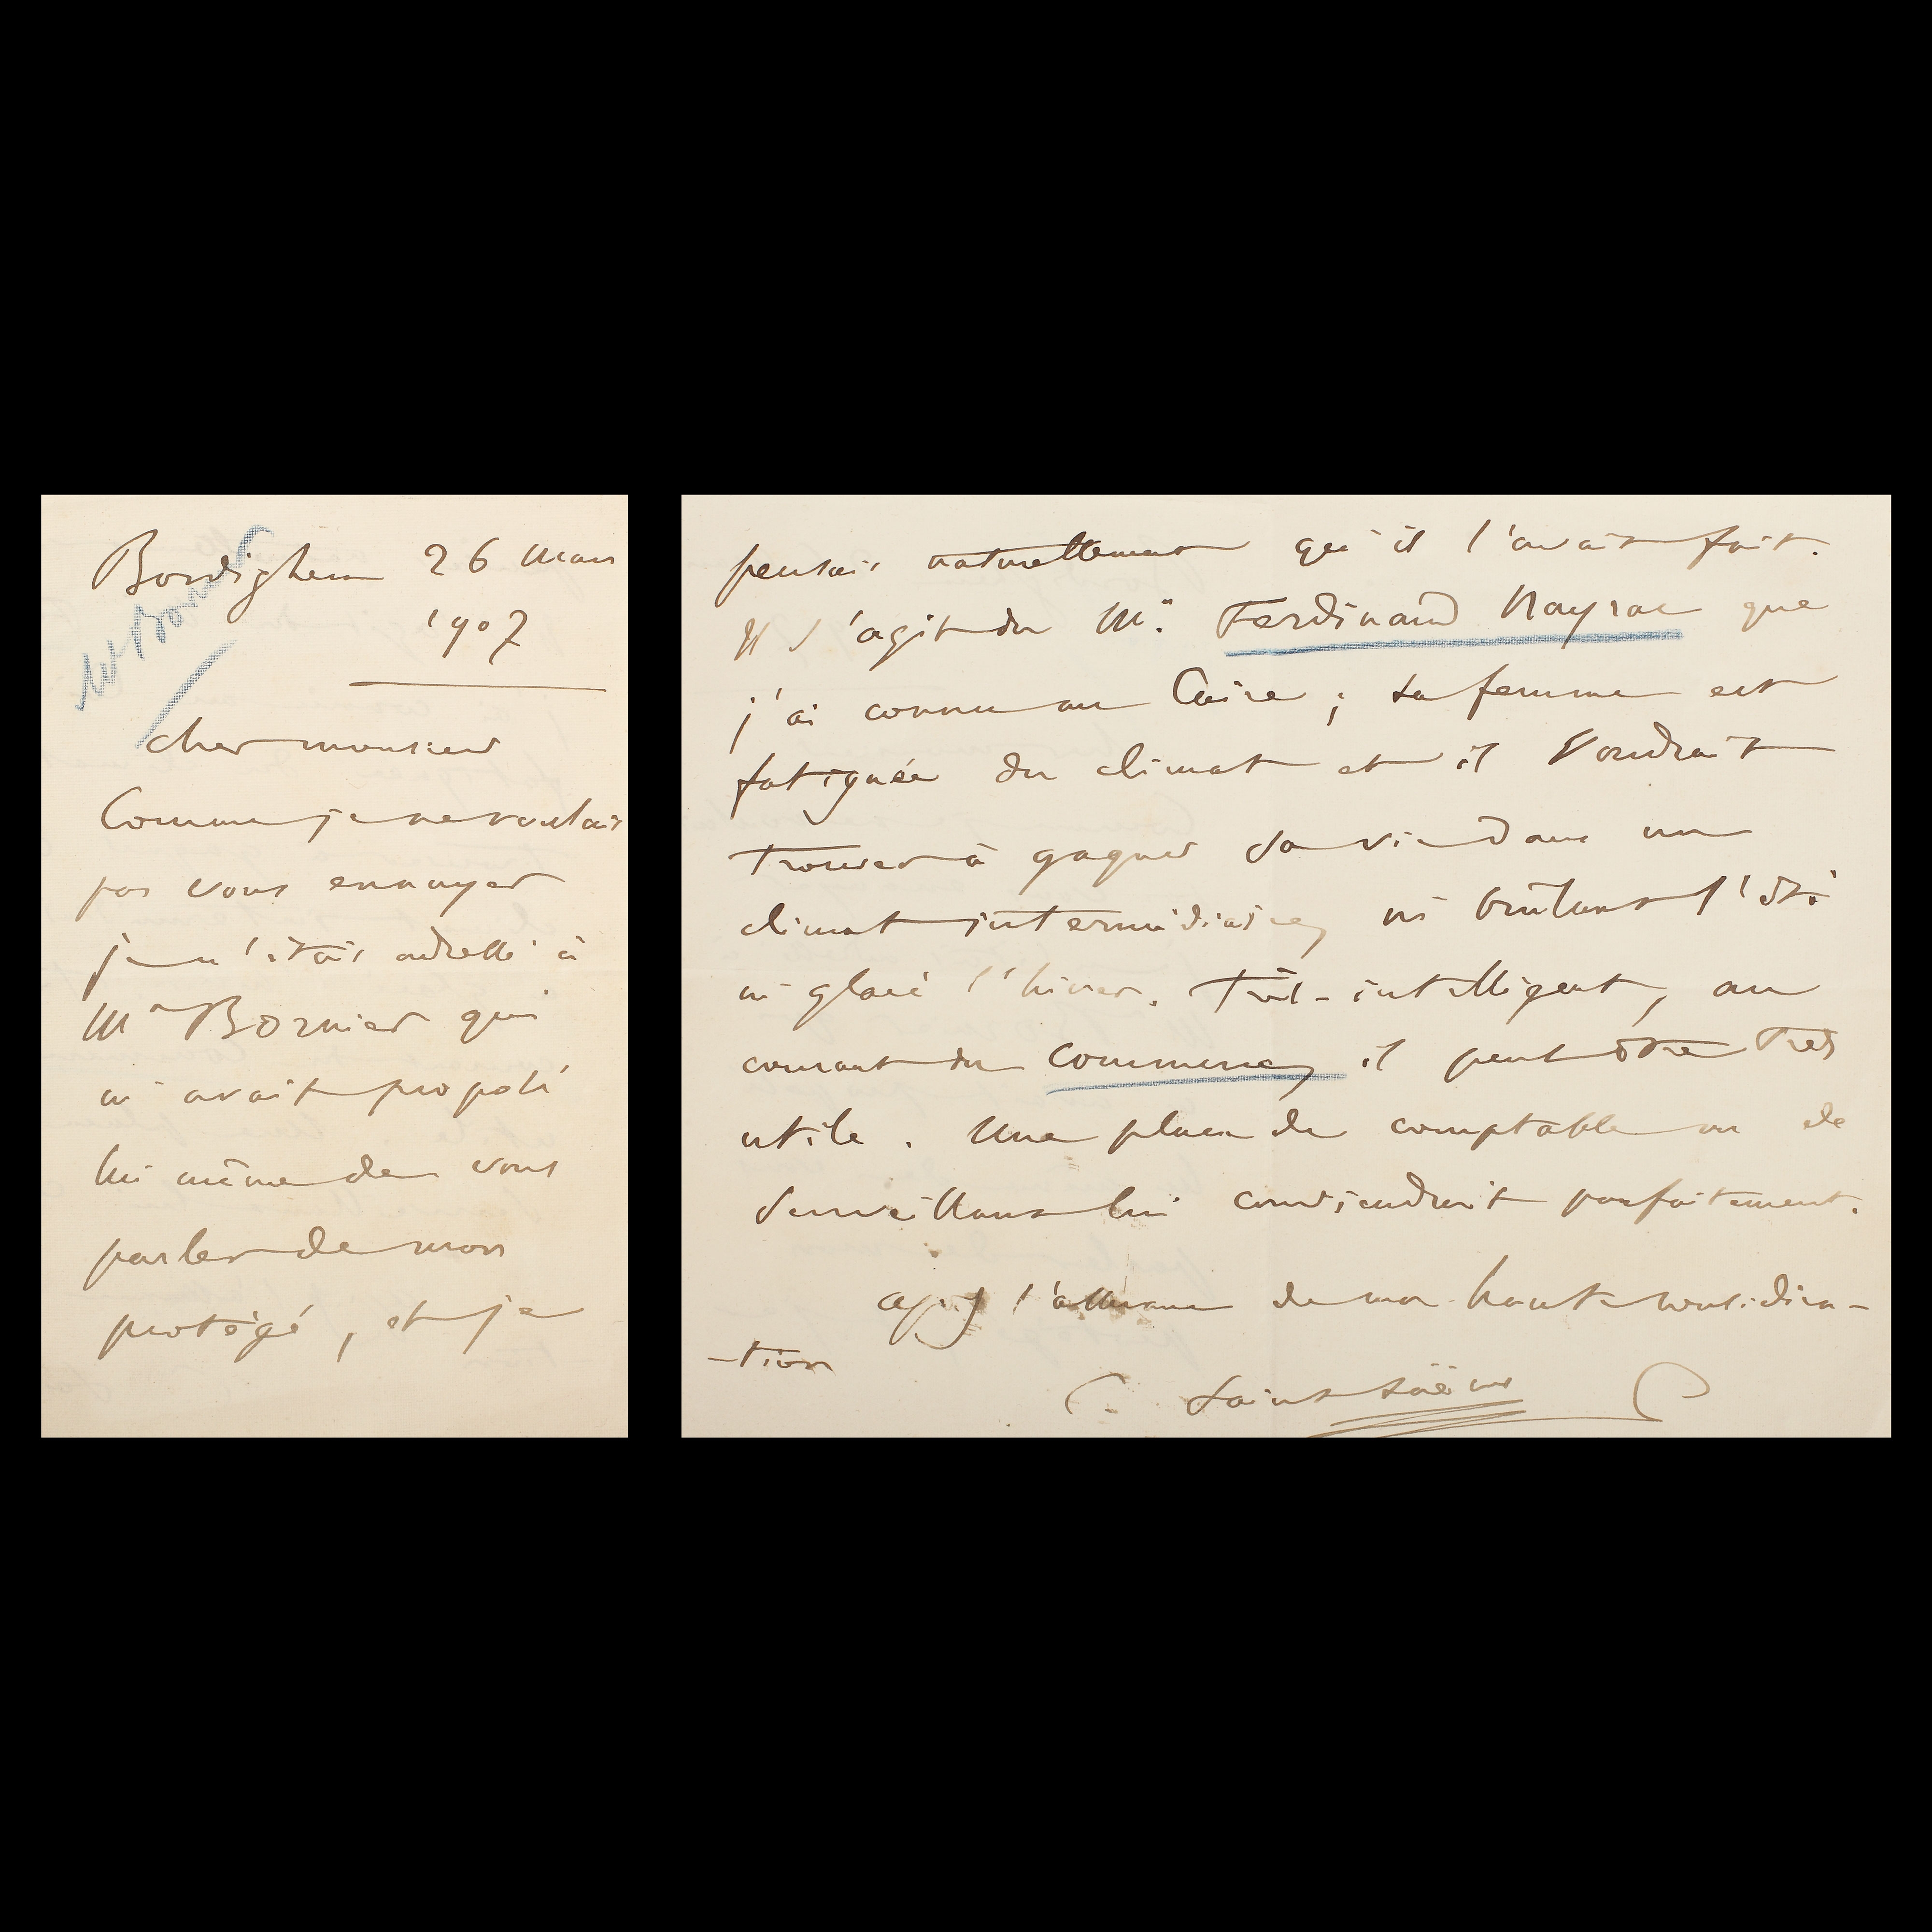 Bordighera 26 Mars
1907
Mr Bornier
cher monsieur
Comme je ne voulais
pas vous ennuyer
je m'étais adressé à
Mr Bornier qui
m'avait proposé
lui même de vous
parler de mon
protégé, et je
pensais naturellement qu'il l'avait fait.
Il s'agit du Mr. Ferdinand Nayrac que
j'ai connu au Caire ; sa femme est
fatiguée du climat et il voudrait
trouver à gagner sa vie dans un
climat intermédiaire, ni brûlant l'été
ni glacé l'hiver. Très-intelligent, au
courant du commerce, il peut être très
utile. Une place de comptable ou de
surveillant lui conviendrait parfaitement.
agréez l'assurance de ma haute considéra-
-tion
C. Saint-Saëns